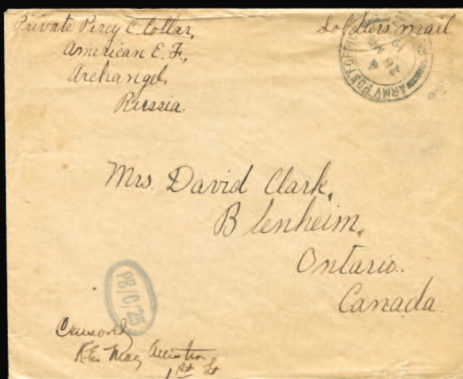 Private Percy C. Collar,
American E. F.,
Archangel,
Russia.
Soldiers mail
ARMY POST OFFICE
Mrs. David Clark,
Blenheim,
Ontario.
Canada.
PB/C/25
Censored
1st Lt